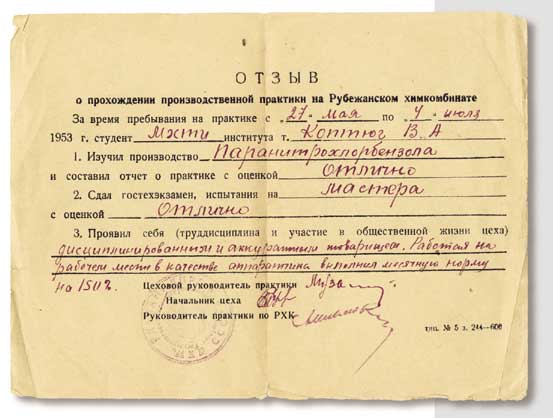 ОТЗЫВ
о прохождении производственной практики на Рубежанском химкомбинате
За время пребывания на практике с „27" мая по „4" июля
1953 г. студент МХТИ института т. Коптюг В. А
1. Изучил производство Паранитрохлорбензола
и составил отчет о практике с оценкой отлично
2. Сдал гостехэкзамен, испытания на мастера
с оценкой отлично
3. Проявил себя (труддисциплина и участие в общественной жизни цеха)
дисциплинированным и аккуратным товарищем. Работая на
рабочем месте в качестве аппаратчика выполнил месячную норму
на 150%.
Цеховой руководитель практики
Начальник цеха
Руководитель практики по РХК
тип. № 5 з. 244—600